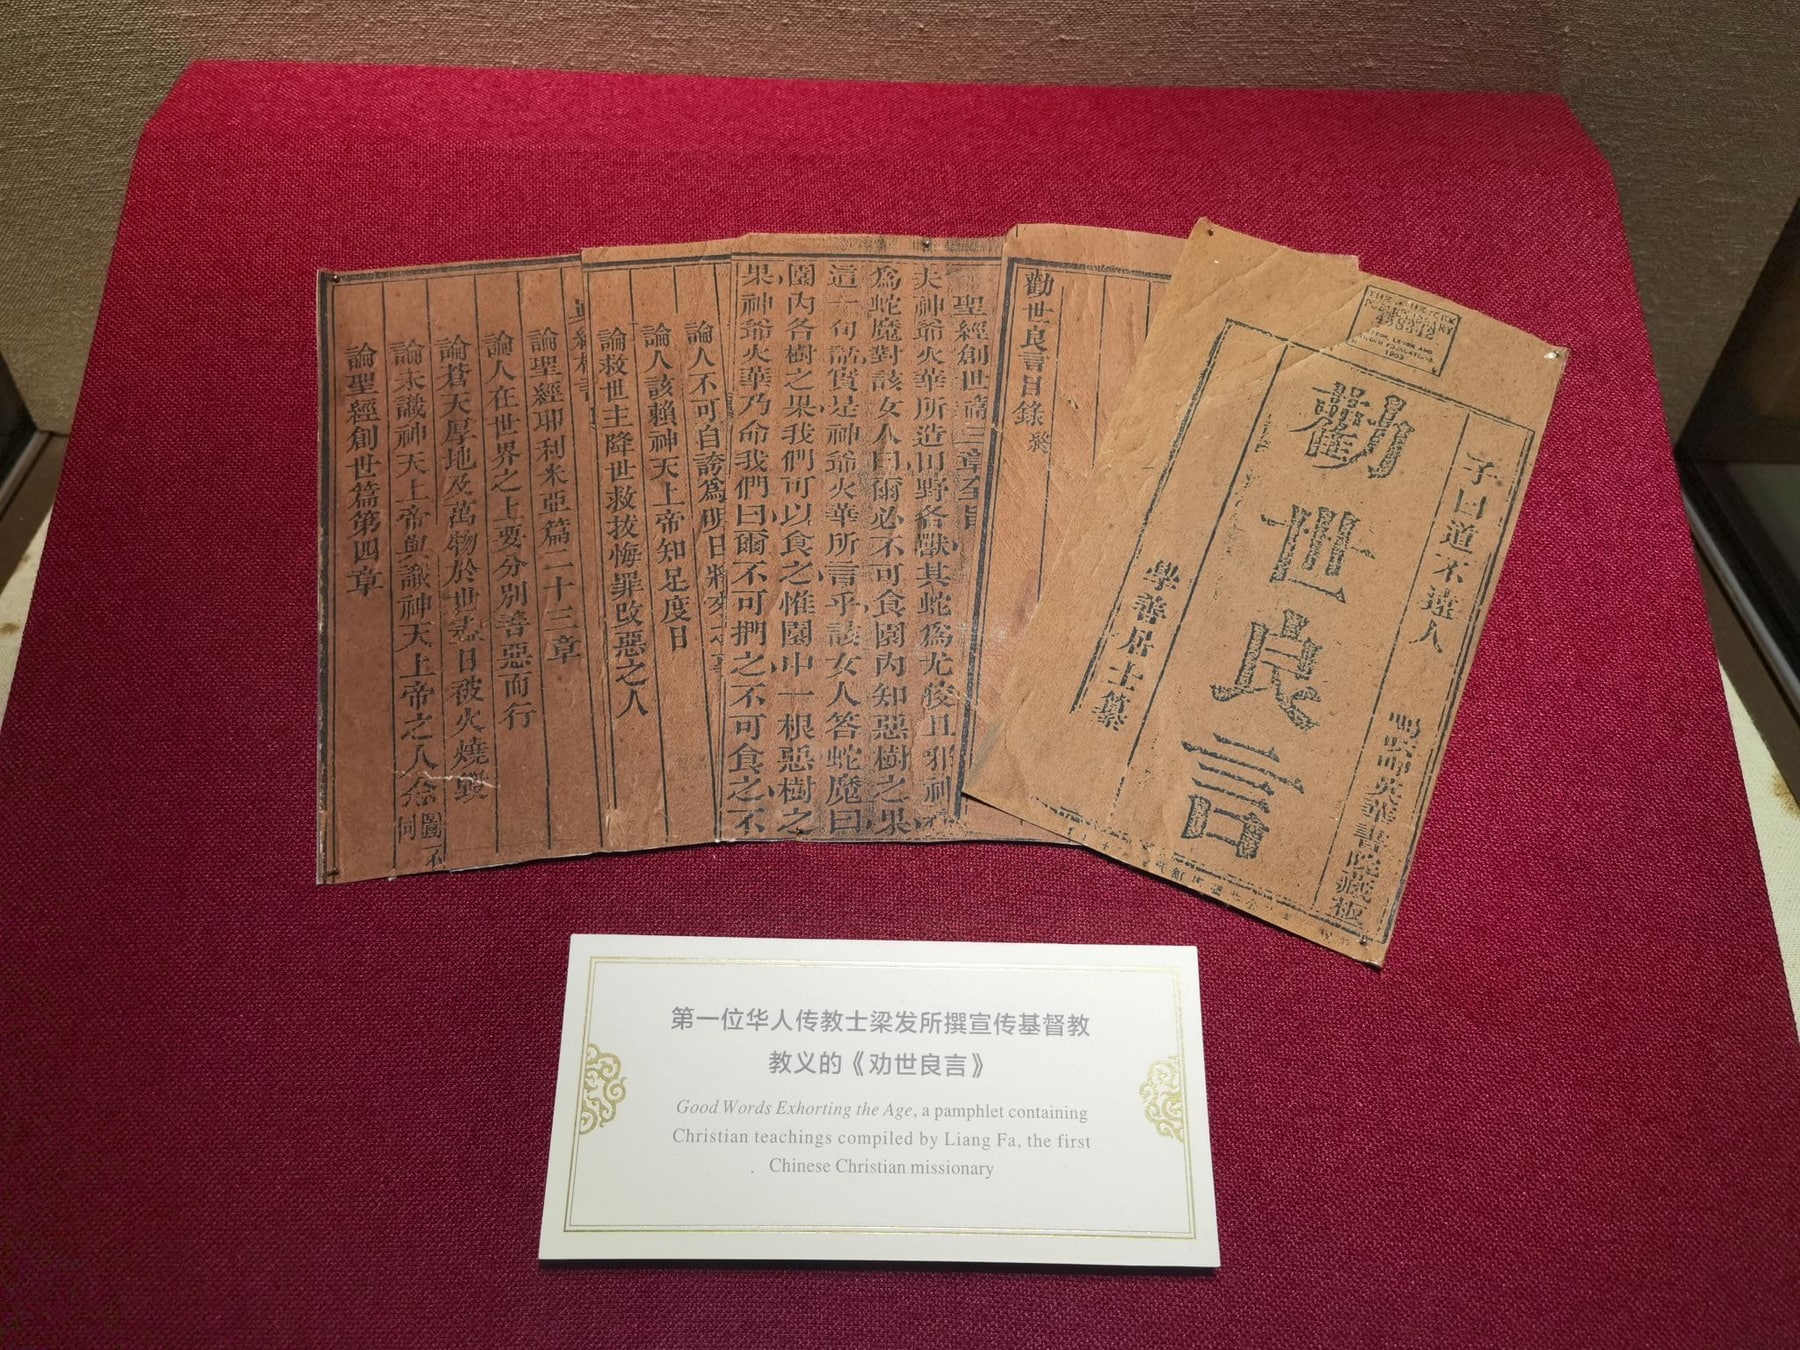 子曰道不遠人
嗎㗝呷英華書院藏板
勸世良言
學善居士纂
勸世良言目錄
聖經創世篇三章全旨
夫神爺火華所造田野各獸其蛇爲尤狡且邪
爲蛇魔對該女人曰爾必不可食園內知惡樹之果
這一句話實是神爺火華所言乎該女人答蛇魔曰
園內各樹之果我們可以食之惟園中一根惡樹之
果神爺火華乃命我們曰爾不可捫之不可食之不
論人不可自誇爲明日將來之事
論人該賴神天上帝知足度日
論救世主降世救拔悔罪改惡之人
論聖經耶利米亞篇二十三章
論人在世界之上要分別善惡而行
論蒼天厚地及萬物於世盡日被火燒毀
論未識神天上帝與識神天上帝之人
論聖經創世篇第四章
第一位华人传教士梁发所撰宣传基督教
教义的《劝世良言》
Good Words Exhorting the Age, a pamphlet containing
Christian teachings compiled by Liang Fa, the first
Chinese Christian missionary